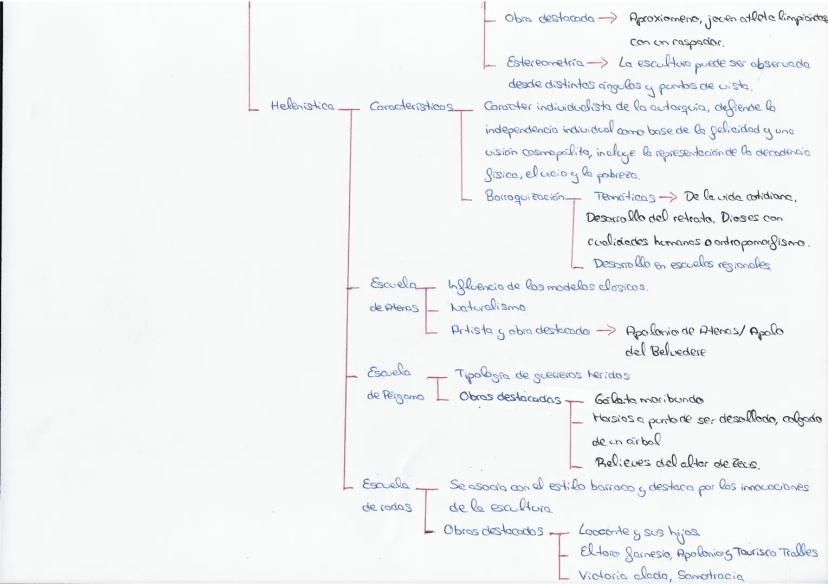 Obra destacada → Aproxiomeno, joven atleta limpiándose
con un raspador.
Estereometría → La escultura puede ser observada
desde distintos ángulos y puntos de vista.
Helenística
Características
Caracter individualista de la autarquía, defiende la
independencia individual como base de la felicidad y una
visión cosmopolita, incluye la representación de la decadencia
física, el vicio y la pobreza.
Barroquización
Temáticas → De la vida cotidiana,
Desarrollo del retrato. Dioses con
cualidades humanas o antropomorfismo.
Desarrollo en escuelas regionales
Escuela
de Atenas
Influencia de los modelos clásicos.
Naturalismo
Artista y obra destacado → Apolonio de Atenas/ Apolo
del Belvedere
Escuela
de Pérgamo
Tipología de guerreros heridos
Obras destacadas
Gálata moribundo
Marsias a punto de ser desollado, colgado
de un árbol
Relieves del altar de Zeus.
Escuela
de rodas
Se asocia con el estilo barroco y destaca por las innovaciones
de la escultura
Obras destacadas
Laoconte y sus hijos
El toro farnesio, Apolonio y Taurisco Tralles
Victoria alada, Samotracia